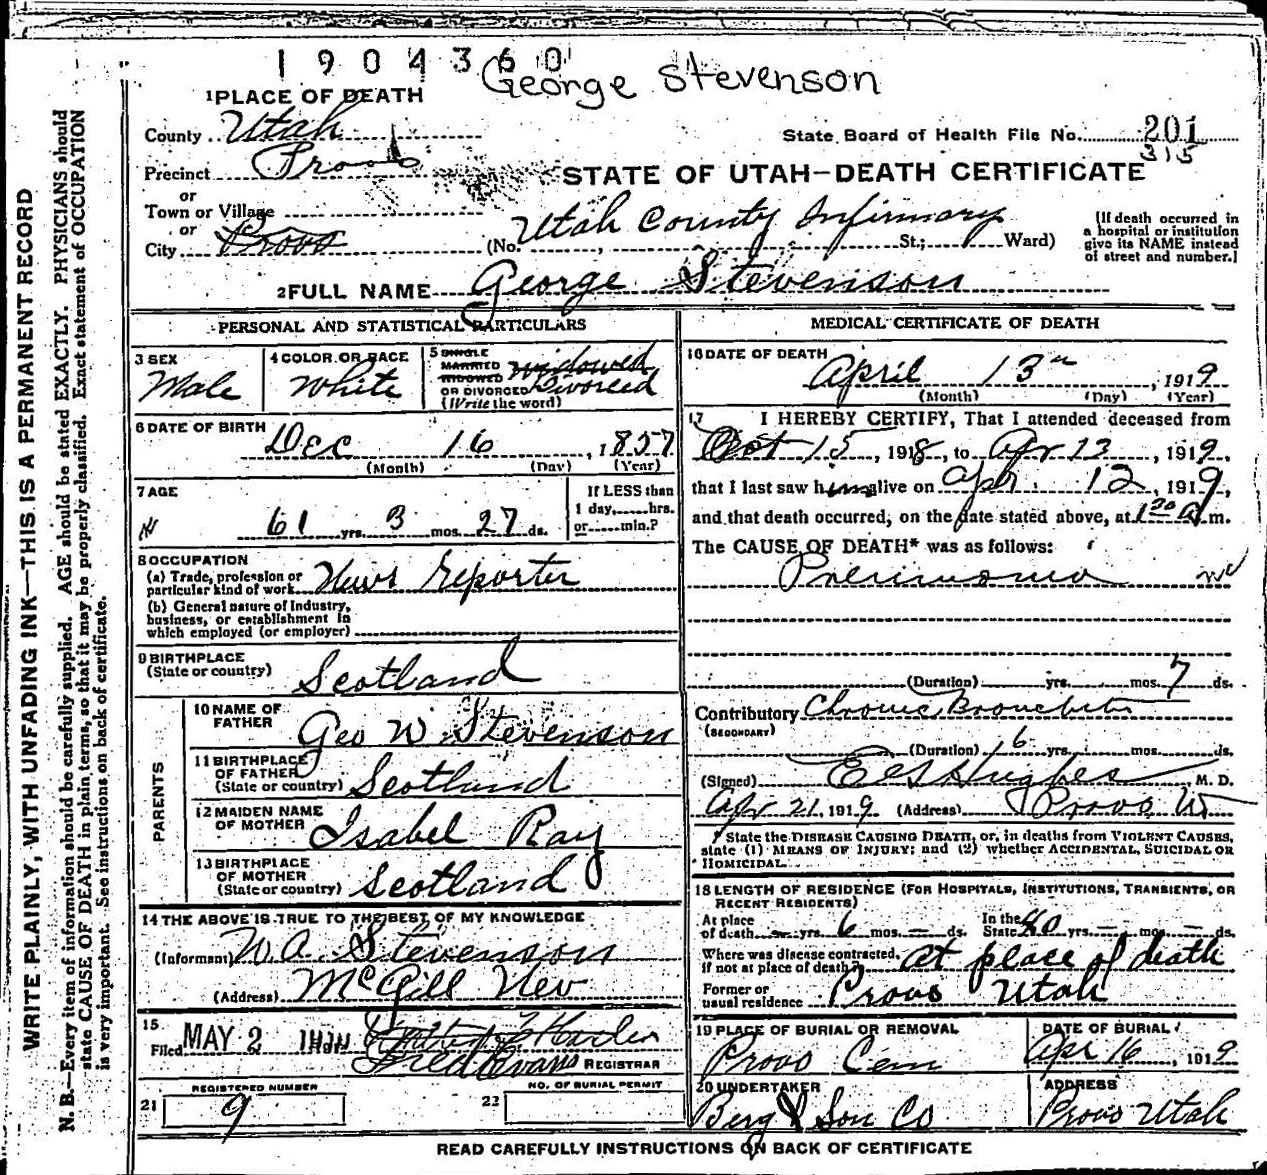 1904360
George Stevenson
1 PLACE OF DEATH
County Utah
State Board of Health File No. 201
315
Precinct Provo
STATE OF UTAH—DEATH CERTIFICATE
or
Town or Village
or
City Provo
(No. Utah County Infirmary St.; Ward)
(If death occurred in a hospital or institution give its NAME instead of street and number.)
2 FULL NAME George Stevenson
PERSONAL AND STATISTICAL PARTICULARS
3 SEX Male
4 COLOR OR RACE White
5 SINGLE MARRIED WIDOWED OR DIVORCED (Write the word) Widowed Divorced
6 DATE OF BIRTH Dec 16, 1857
(Month) (Day) (Year)
7 AGE 61 yrs. 3 mos. 27 ds.
If LESS than 1 day, hrs. or min.?
8 OCCUPATION
(a) Trade, profession or particular kind of work News Reporter
(b) General nature of Industry, business, or establishment in which employed (or employer)
9 BIRTHPLACE (State or country) Scotland
PARENTS
10 NAME OF FATHER Geo W. Stevenson
11 BIRTHPLACE OF FATHER (State or country) Scotland
12 MAIDEN NAME OF MOTHER Isabel Ray
13 BIRTHPLACE OF MOTHER (State or country) Scotland
14 THE ABOVE IS TRUE TO THE BEST OF MY KNOWLEDGE
(Informant) W. A. Stevenson
(Address) McGill Nev
15 Filed MAY 2
Fred Evans REGISTRAR
REGISTERED NUMBER
21 9
NO. OF BURIAL PERMIT
22
MEDICAL CERTIFICATE OF DEATH
16 DATE OF DEATH April 13th, 1919
(Month) (Day) (Year)
17 I HEREBY CERTIFY, That I attended deceased from
Oct 15, 1918, to Apr 13, 1919,
that I last saw him alive on Apr. 12, 1919,
and that death occurred, on the date stated above, at 1 30 A.m.
The CAUSE OF DEATH* was as follows:
Pneumonia
(Duration) yrs. mos. 7 ds.
Contributory Chronic Bronchitis
(SECONDARY)
(Duration) 16 yrs. mos. ds.
(Signed) Hughes M. D.
Apr 21, 1919 (Address) Provo Ut
*State the DISEASE CAUSING DEATH, or, in deaths from VIOLENT CAUSES,
state (1) MEANS OF INJURY; and (2) whether ACCIDENTAL, SUICIDAL OR
HOMICIDAL.
18 LENGTH OF RESIDENCE (FOR HOSPITALS, INSTITUTIONS, TRANSIENTS, OR
RECENT RESIDENTS)
At place of death - yrs. 6 mos. - ds. In the State 40 yrs. - mos. - ds.
Where was disease contracted, if not at place of death? At place of death
Former or usual residence Provo Utah
19 PLACE OF BURIAL OR REMOVAL Provo Cem
DATE OF BURIAL Apr 16, 1919
20 UNDERTAKER Berg & Son Co
ADDRESS Provo Utah
READ CAREFULLY INSTRUCTIONS ON BACK OF CERTIFICATE
WRITE PLAINLY, WITH UNFADING INK—THIS IS A PERMANENT RECORD
N. B.—Every item of information should be carefully supplied. AGE should be stated EXACTLY. PHYSICIANS should
state CAUSE OF DEATH in plain terms, so that it may be properly classified. Exact statement of OCCUPATION
is very important. See instructions on back of certificate.